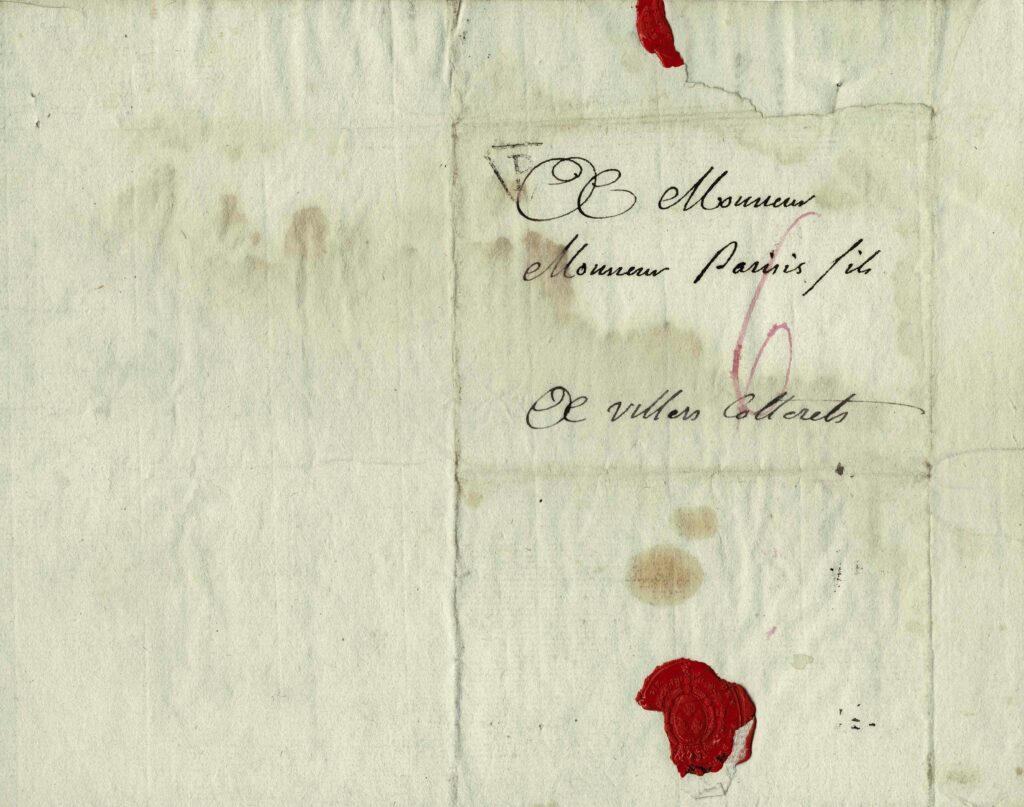 A Monsieur
Monsieur Parisis fils
6
A Villers Cotterets